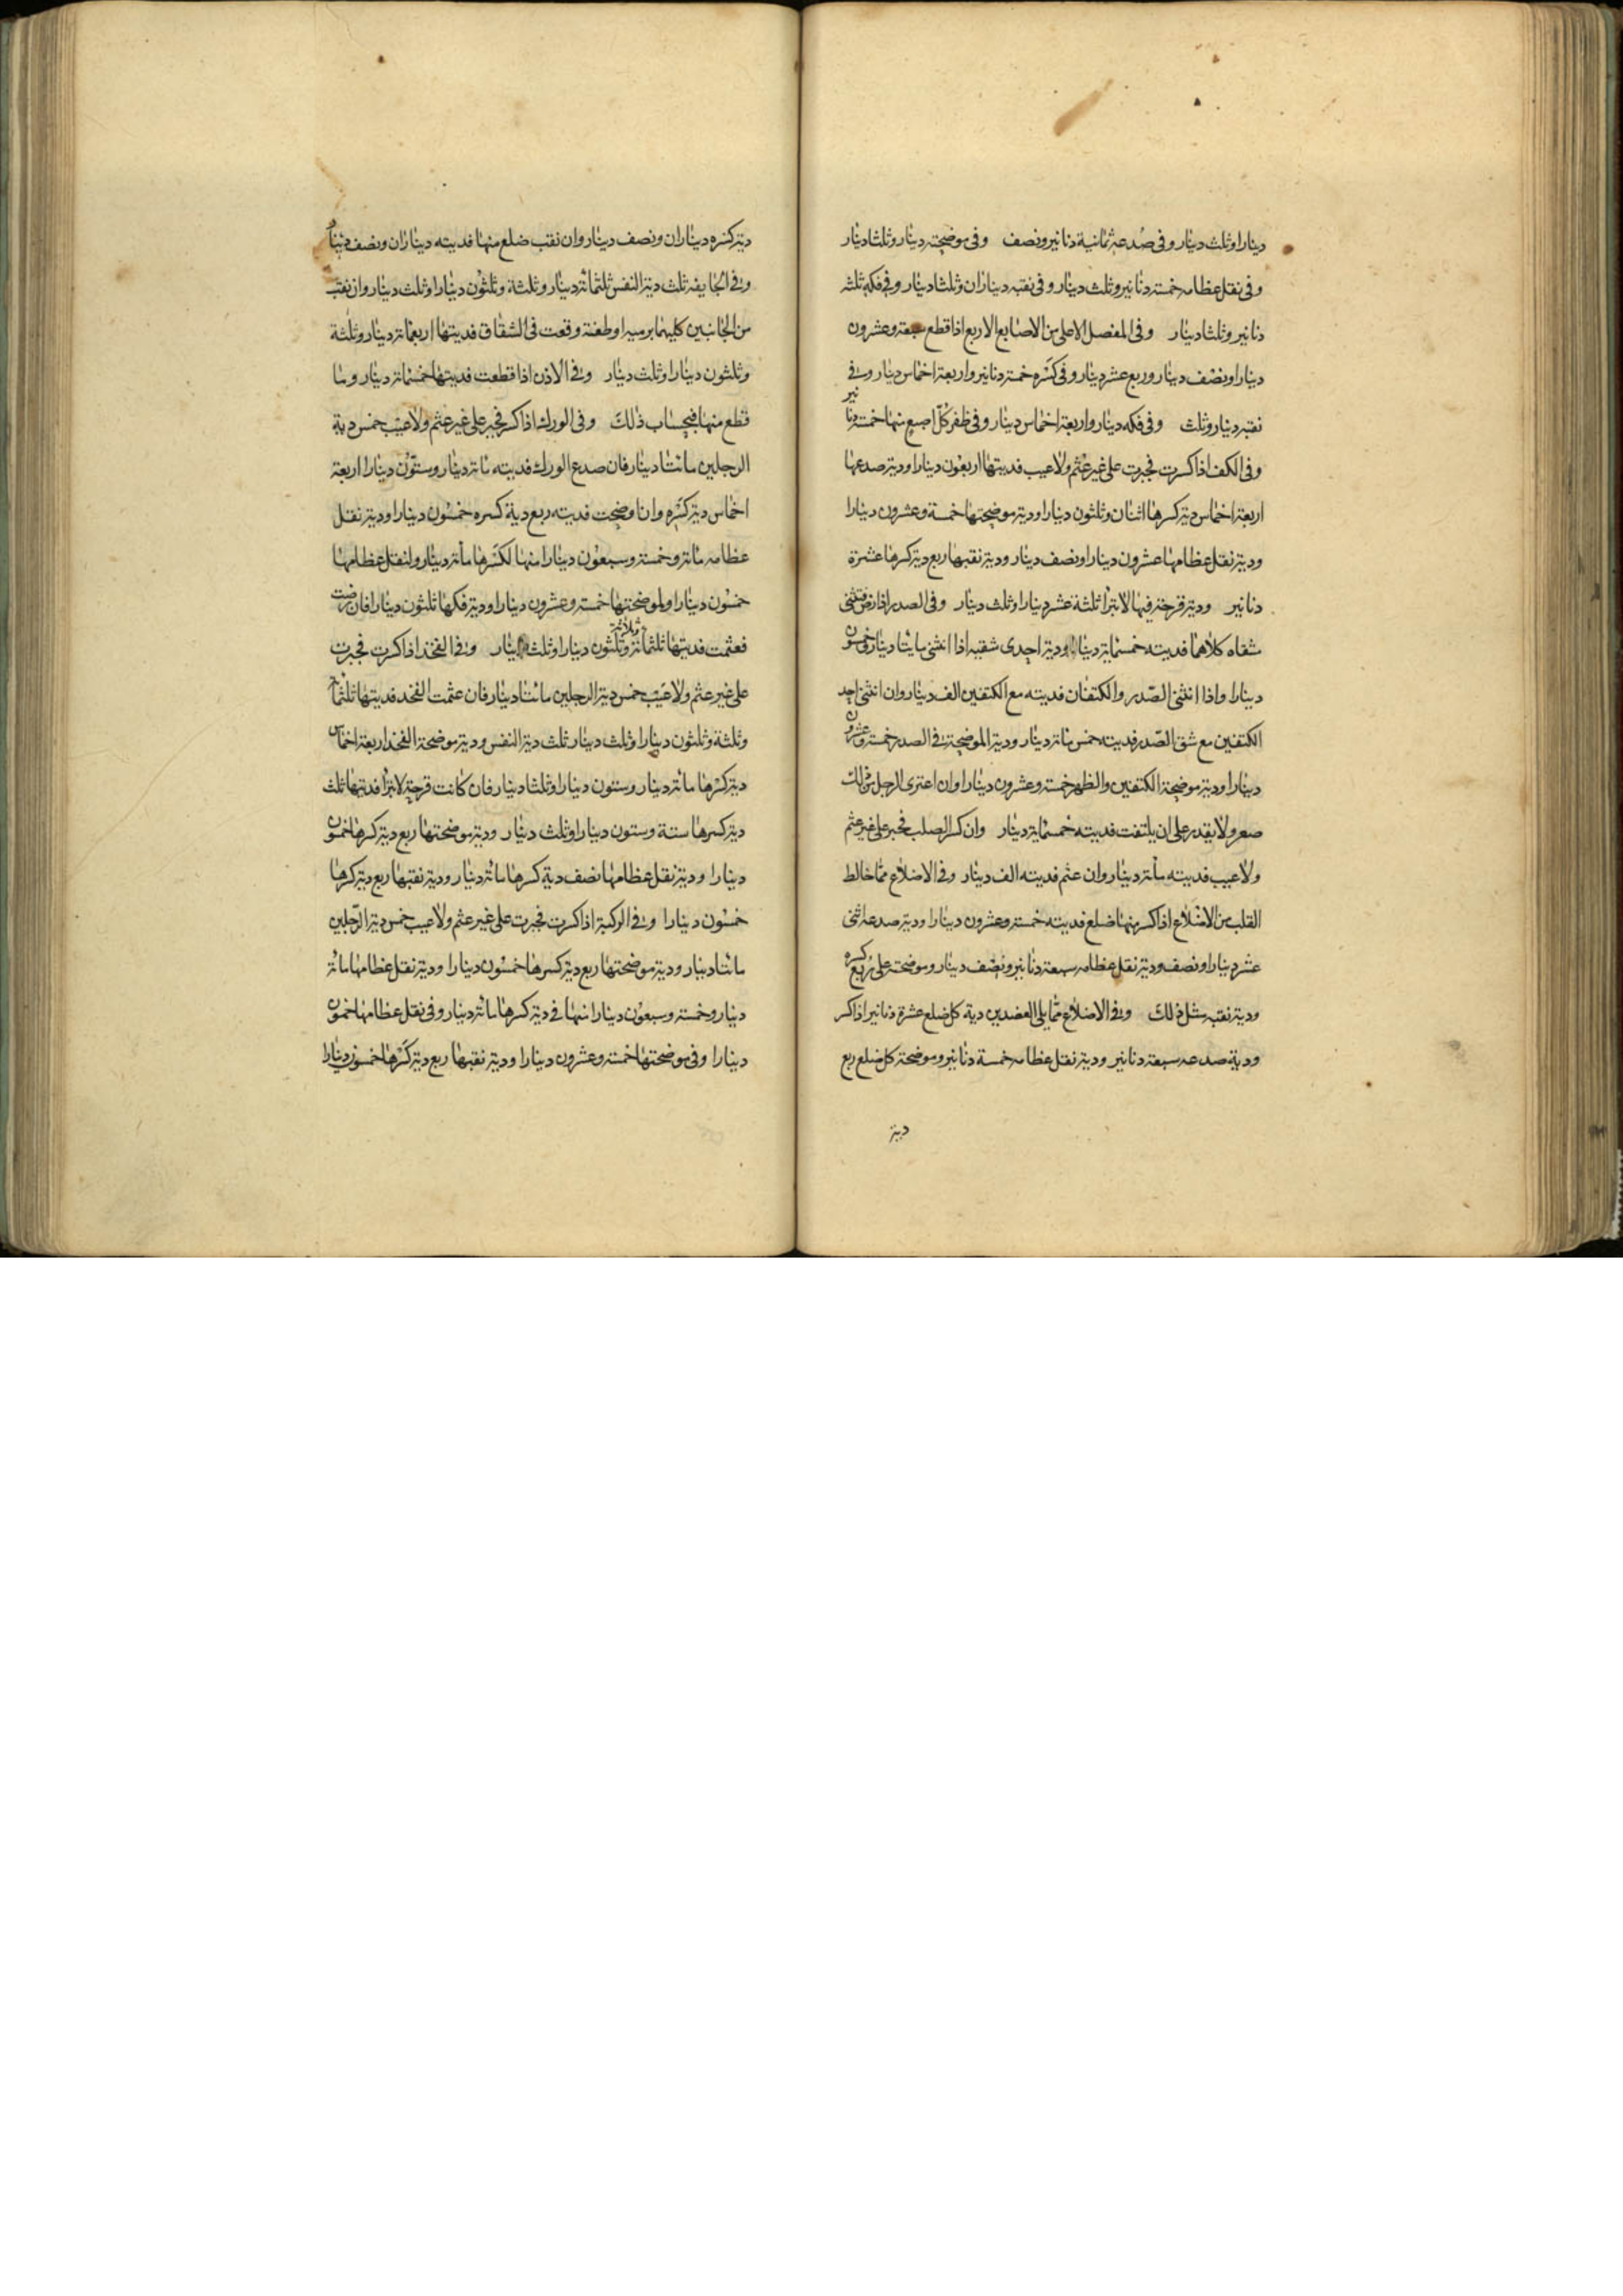 دينارا وثلث دينار وفى صدعه ثمانية دنانير ونصف وفى موضحته دينار وثلثا دينار
وفى نقل عظامه خمسة دنانير وثلث دينار وفى نقبه ديناران وثلثا دينار وفى فكه ثلثه
دنانير وثلثا دينار وفى المفصل الاعلى من الاصابع الاربع اذا قطع سبعة وعشرون
دينارا ونصف دينار وربع عشر دينار وفى كسره خمسة دنانير واربعة اخماس دينار وفى
نقبه دينار وثلث وفى فكه دينار واربعة اخماس دينار وفى ظفر كل اصبع منها خمسة دنانير
وفى الكف اذا كسرت فجبرت على غير عثم ولا عيب فديتها اربعون دينارا ودية صدعها
اربعة اخماس دية كسرها اثنان وثلثون دينارا ودية موضحتها خمسة وعشرون دينارا
ودية نقل عظامها عشرون دينارا ونصف دينار ودية نقبها ربع دية كسرها عشرة
دنانير ودية قرحة فيها لا تبرأ ثلثة عشر دينارا وثلث دينار وفى الصدر اذا رض فثنى
شقاه كلاهما فديته خمسماية دينار ودية احدى شقيه اذا انثنى مايتا دينار وخمسون
دينارا واذا انثنى الصدر والكتفان فديته مع الكتفين الف دينار وان انثنى احد
الكتفين مع شق الصدر فديته خمس مائة دينار ودية الموضحة فى الصدر خمسة وعشرون
دينارا ودية موضحة الكتفين والظهر خمسة وعشرون دينارا وان اعترى الرجل من ذلك
صعر ولا يقدر على ان يلتفت فديته خمسماية دينار وان كسر الصلب فجبر على غير عثم
ولا عيب فديته مائة دينار وان عثم فديته الف دينار وفى الاضلاع مما خالط
القلب من الاضلاع اذا كسر منها ضلع فديته خمسة وعشرون دينارا ودية صدعه اثنى
عشر دينارا ونصف ودية نقل عظامه سبعة دنانير ونصف دينار وموضحته على ربع كسره
ودية نقبه مثل ذلك وفى الاضلاع مما يلى العضدين دية كل ضلع عشرة دنانير اذا كسر
ودية صدعه سبعة دنانير ودية نقل عظامه خمسة دنانير وموضحة كل ضلع ربع
دية
دية كسره ديناران ونصف دينار وان نقب ضلع منها فديته ديناران ونصف دينار
وفى الجايفه ثلث دية النفس ثلثمائة دينار وثلثة وثلثون دينارا وثلث دينار وان نقب
من الجانبين كليهما برميه او طعنة وقعت فى الشقاق فديتها اربعمائة دينار وثلثة
وثلثون دينارا وثلث دينار وفى الاذن اذا قطعت فديتها خمسمائة دينار وما
قطع منها فبحساب ذلك وفى الورك اذا كسر فجبر على غير عثم ولا عيب خمس دية
الرجلين مائتا دينار فان صدع الورك فديته مائة دينار وستون دينارا اربعة
اخماس دية كسره وان اوضحت فديته ربع دية كسره خمسون دينارا ودية نقل
عظامه مائة وخمسة وسبعون دينارا منها لكسرها مائة دينار ولنقل عظامها
خمسون دينارا ولموضحتها خمسة وعشرون دينارا ودية فكها ثلثون دينارا فان رضت
فعثمت فديتها ثلثمائة وثلاثة وثلثون دينارا وثلث دينار وفى الفخذ اذا كسرت فجبرت
على غير عثم ولا عيب خمس دية الرجلين مائتا دينار فان عثمت الفخذ فديتها ثلثمائة
وثلثة وثلثون دينارا وثلث دينار ثلث دية النفس ودية موضحة الفخذ اربعة اخماس
دية كسرها مائة دينار وستون دينارا وثلثا دينار فان كانت قرحة لا تبرأ فديتها ثلث
دية كسرها ستة وستون دينارا وثلث دينار ودية موضحتها ربع دية كسرها خمسون
دينارا ودية نقل عظامها نصف دية كسرها مائة دينار ودية نقبها ربع دية كسرها
خمسون دينارا وفى الركبة اذا كسرت فجبرت على غير عثم ولا عيب خمس دية الرجلين
مائتا دينار ودية موضحتها ربع دية كسرها خمسون دينارا ودية نقل عظامها مائة
دينار وخمسة وسبعون دينارا منها فى دية كسرها مائة دينار وفى نقل عظامها خمسون
دينارا وفى موضحتها خمسة وعشرون دينارا ودية نقبها ربع دية كسرها خمسون دينارا